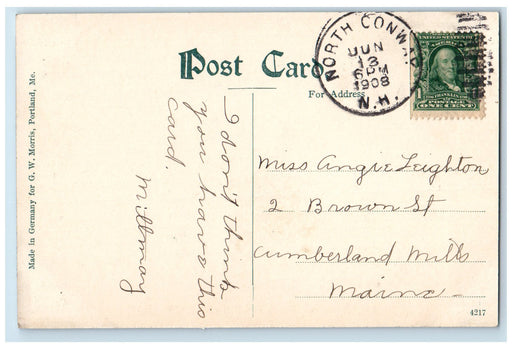 Post Card
For Address
NORTH CONWAY
JUN
13
6 PM
1908
N.H.
POSTAGE
ONE CENT
Made in Germany for G. W. Morris, Portland, Me.
I don't think
you have this
card.
Millmay
Miss Angie Leighton
2 Brown St
Cumberland Mills
Maine
4217